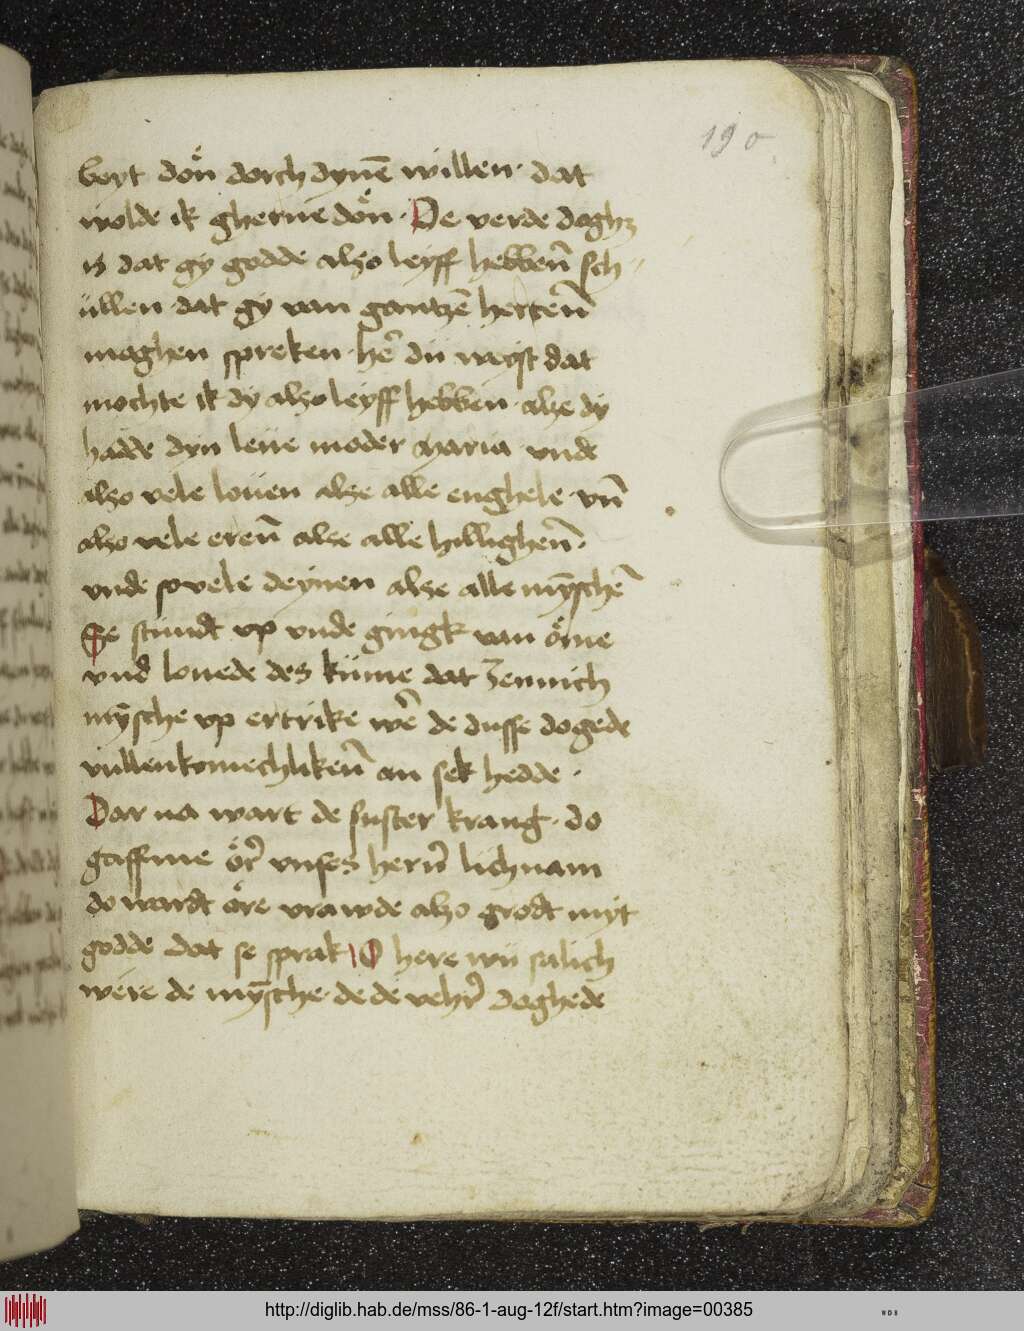 190
beyt dön dorch dynē willen · dat
wolde ik gherne dön · De verde doghz
is dat gy godde alzo leyff hebbēn sch
üllen dat gy van gantzē hertēn
moghen spreken · hēr dü weyst dat
mochte ik dy alzo leyff hebben · alze dy
hadde dyn leue moder Maria vnde
alzo vele louen alze alle enghele vn̄
alzo vele erēn alze alle hillighēn ·
vnde so vele deynen alze alle mȳschē
Se stundt vp vnde gingk van öme
vnd louede des kume dat Jennich
mȳsche vp ertrike wēr de dusse dogede
vullenkomechlikēn an sek hedde ·
Dar na wart de suster krang · do
gaffme ör̄ vnses hern̄ lichnam
do wardt öre vrawde alzo grodt myt
godde dat se sprak O here wü salich
were de mȳsche · de de vehr̄ doghede
http://diglib.hab.de/mss/86-1-aug-12f/start.htm?image=00385
WDB